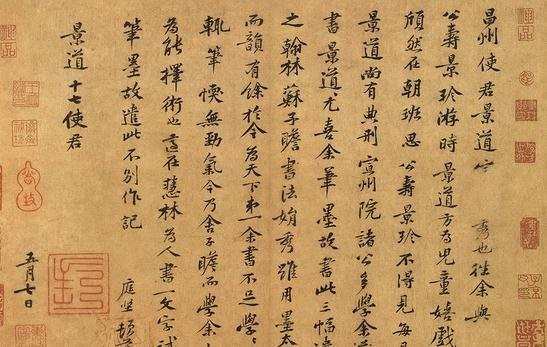 昌州使君景道宗秀也往余與
公壽景珍游時景道方為兒童嬉戲
頎然在朝班思公壽景珍不得見每
景道尚有典刑宣州院諸公多學余
書景道尤喜余筆墨故書此三幅遺
之翰林蘇子瞻書法娟秀雖用墨太
而韻有餘於今為天下第一余書不足學學
輒筆愞無勁氣今乃舍子瞻而學余
為能擇術也適在慧林為人書一文字試
筆墨故遣此不別作記
庭堅頓
景道十七使君
五月七日